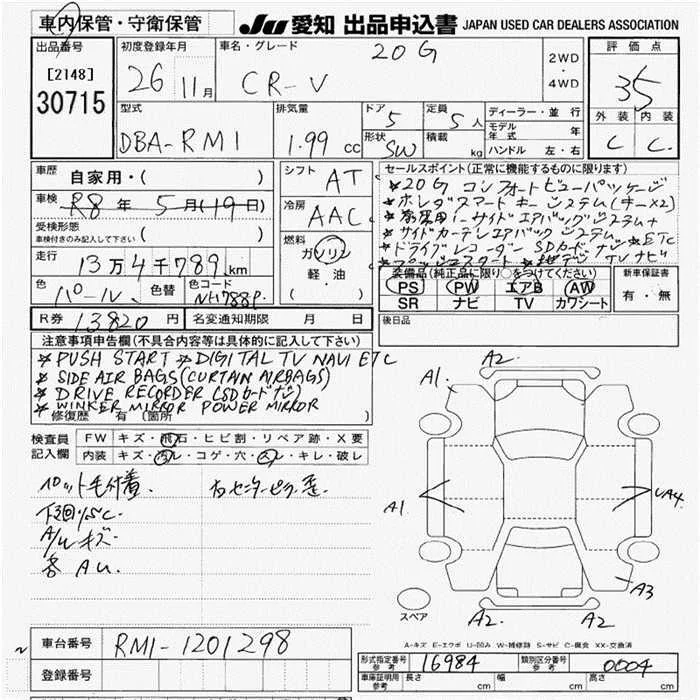 車内保管・守衛保管 JU 愛知 出品申込書 JAPAN USED CAR DEALERS ASSOCIATION
出品番号 [2148] 30715
初度登録年月 26 11月
車名・グレード 20G CR-V
2WD・4WD
評価点 3.5
外装 内装
C C
型式 DBA-RM1
排気量 1.99 cc
ドア 5 定員 5人
形状 SW 積載 kg
ディーラー・並行
モデル年式 年
ハンドル 左・右
車歴 自家用・( )
車検 R8年 5月(19日)
受検形態
車検付きのみ記入して下さい ( )
走行 13万4千789km
色 パール 色替 色コード NH788P
シフト AT
冷房 AAC
燃料 ガソリン 軽油 ( )
セールスポイント(正常に機能するものに限ります)
*20G コンフォートビューパッケージ
*ホンダスマートキーシステム(キー×2)
サイドエアバッグシステム+
*サイドカーテンエアバッグシステム *ETC
*ドライブレコーダー SDカードナビ
装備品(純正品に限り○をつけてください)
PS PW エアB AW
SR ナビ TV カワシート
新車保証書 有・無
R券 13820円 名変通知期限 月 日
後日品
注意事項申告欄(不具合内容等は具体的に記入して下さい)
*PUSH START *DIGITAL TV NAVI ETC
*SIDE AIR BAGS (CURTAIN AIRBAGS)
*DRIVE RECORDER (SDカードナビ)
*WINKER MIRROR POWER MIRROR
修復歴 有 (箇所 )
検査員記入欄
FW キズ・飛石・ヒビ割・リペア跡・X要
内装 キズ・汚レ・コゲ・穴・スレ・キレ・破レ
ペット毛付着.
下回りSC.
A/Wキズ.
各AU.
A1 A2
A1 A4
A3
A2 A2
スペア
A-キズ E-エクボ U-凹み W-補修跡 S-サビ C-腐食 XX-交換済
車台番号 RM1-1201298
登録番号
形式指定番号 参考 16984 類別区分番号 参考 0004
車庫証明用 参考 長さ cm 幅 cm 高さ cm